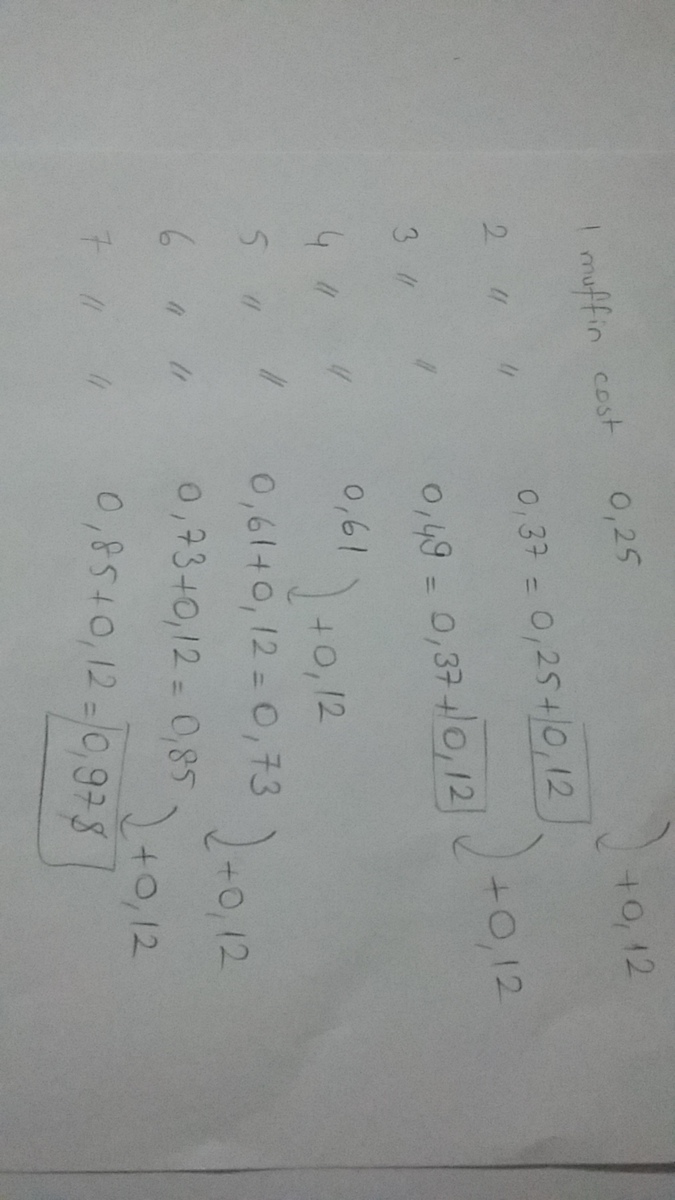 1 muffin cost 0,25
+0,12
2 " " 0,37 = 0,25+0,12
+0,12
3 " " 0,49 = 0,37+0,12
4 " " 0,61
+0,12
5 " " 0,61+0,12=0,73
+0,12
6 " " 0,73+0,12=0,85
+0,12
7 " " 0,85+0,12=0,97$